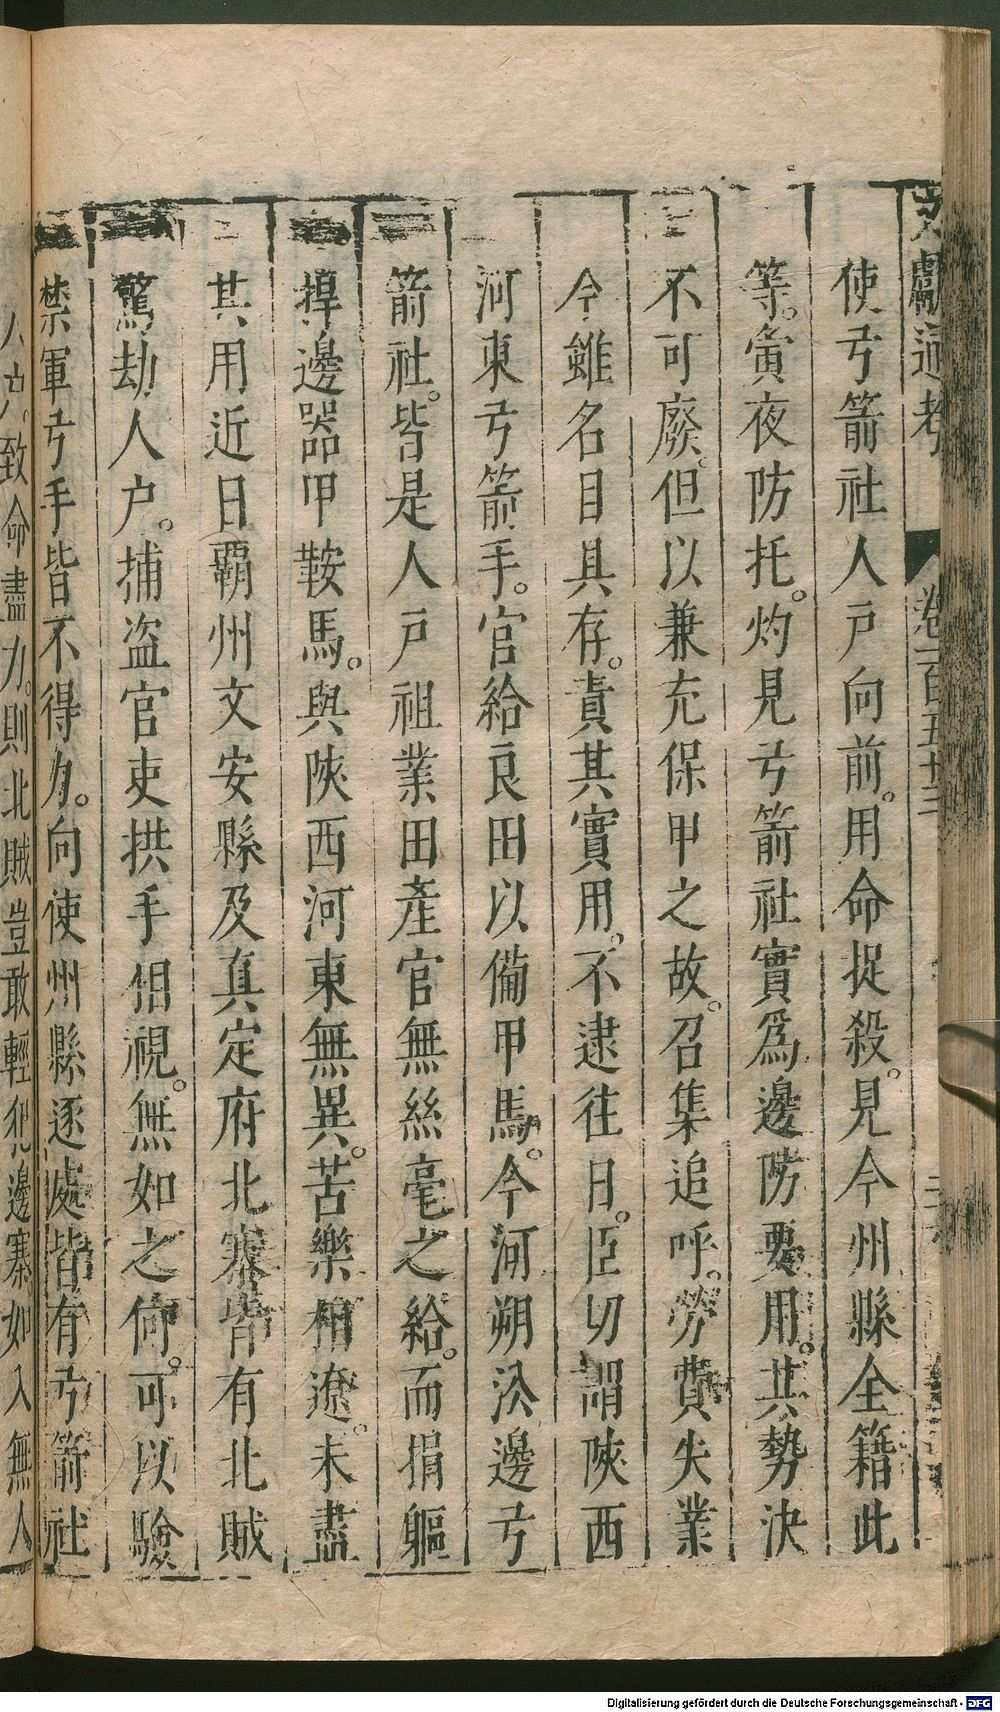 文獻通考 卷一百五十三
使弓箭社人戶向前。用命捉殺。見今州縣全籍此
等。寅夜防托。灼見弓箭社實爲邊防要用。其勢決
不可廢。但以兼充保甲之故。召集追呼。勞費失業
今雖名目具存。責其實用。不逮往日。臣切謂陝西
河東弓箭手。官給良田以備甲馬。今河朔㳂邊弓
箭社。皆是人戶祖業田產官無絲毫之給。而捐軀
捍邊器甲鞍馬。與陝西河東無異。苦樂相遼。未盡
其用近日霸州文安縣及真定府北寨皆有北賊
驚劫人户。捕盗官吏拱手相視。無如之何。可以驗
禁軍弓手皆不得力。向使州縣逐處皆有弓箭社
人戶。致命盡力。則北賊豈敢輕犯邊寨。如入無人
Digitalisierung gefördert durch die Deutsche Forschungsgemeinschaft - DFG